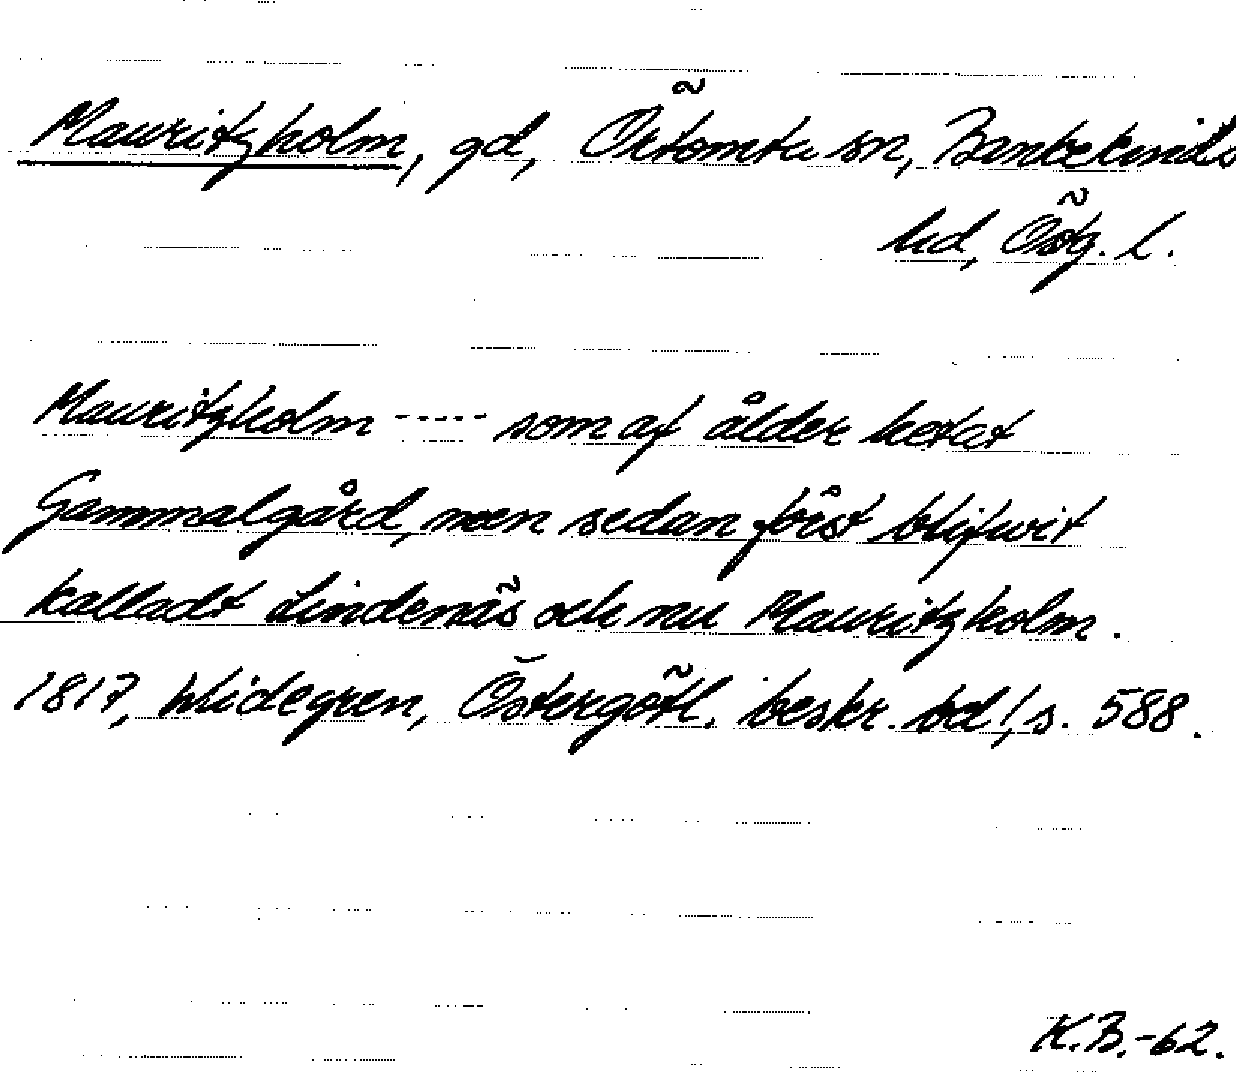 Mauritzholm, gd, Örtomta sn, Bankekinds
hd, Östg. L.
Mauritzholm ----- som af ålder hetat
Gammalgård, men sedan först blifwit
kalladt Lindenäs och nu Mauritzholm.
1817, Widegren, Östergötl. beskr. bd 1, s. 588.
K.B.-62.